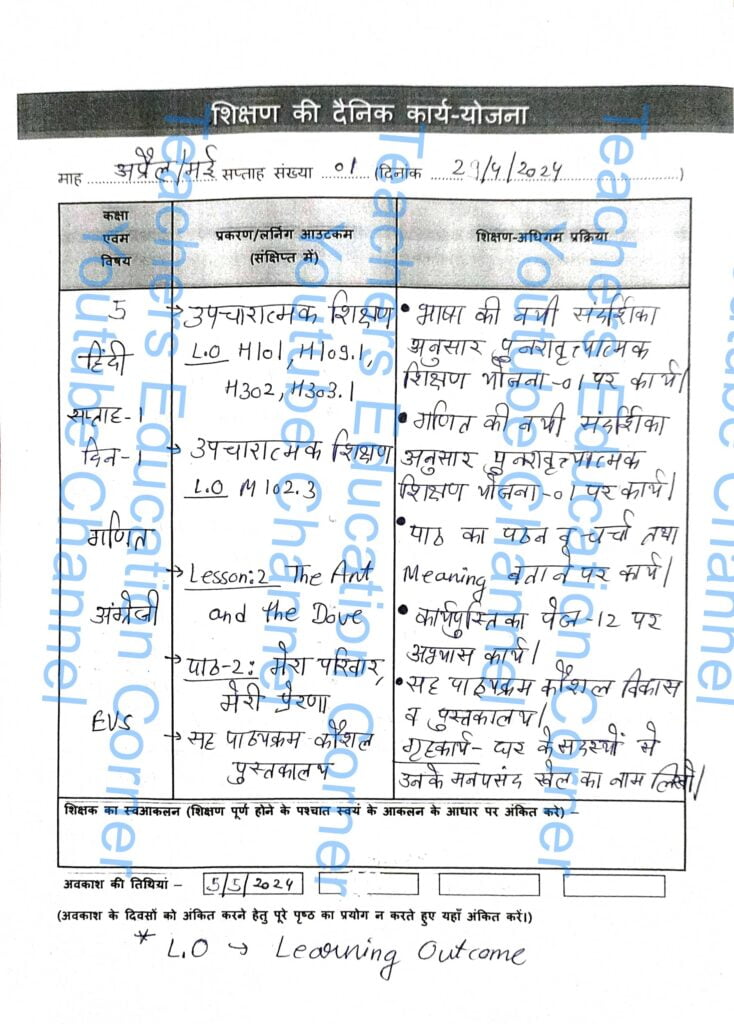 शिक्षण की दैनिक कार्य-योजना
माह अप्रैल/मई सप्ताह संख्या 01 (दिनांक 29/4/2024)
कक्षा
एवम
विषय
प्रकरण/लर्निंग आउटकम
(संक्षिप्त में)
शिक्षण-अधिगम प्रक्रिया
5
हिंदी
सप्ताह-1
दिन-1
गणित
अंग्रेजी
EVS
→ उपचारात्मक शिक्षण
L.O H101, H109.1,
H302, H303.1
→ उपचारात्मक शिक्षण
L.O M102.3
→ Lesson:2 The Ant
and the Dove
→ पाठ-2: मेरा परिवार,
मेरी प्रेरणा
→ सह पाठ्यक्रम कौशल
पुस्तकालय
• भाषा की नयी संदर्शिका
अनुसार पुनरावृत्त्यात्मक
शिक्षण योजना-01 पर कार्य।
• गणित की नयी संदर्शिका
अनुसार पुनरावृत्त्यात्मक
शिक्षण योजना-01 पर कार्य।
• पाठ का पठन व चर्चा तथा
Meaning बताने पर कार्य।
• कार्यपुस्तिका पेज-12 पर
अभ्यास कार्य।
• सह पाठ्यक्रम कौशल विकास
व पुस्तकालय।
गृहकार्य- घर के सदस्यों से
उनके मनपसंद खेल का नाम लिखो।
शिक्षक का स्वआकलन (शिक्षण पूर्ण होने के पश्चात स्वयं के आकलन के आधार पर अंकित करे) –
अवकाश की तिथियां – 5/5/2024
(अवकाश के दिवसों को अंकित करने हेतु पूरे पृष्ठ का प्रयोग न करते हुए यहाँ अंकित करें।)
* L.O → Learning Outcome
Teachers Education Corner
Youtube Channel
Teachers Education Corner
Youtube Channel
Teachers Education Corner
Youtube Channel